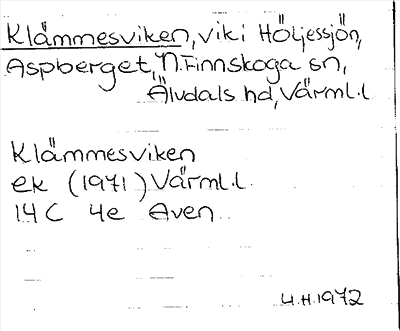 Klämmesviken, vik i Höljessjön,
Aspberget, N. Finnskoga sn,
Älvdals hd, Värml. l
Klämmesviken
ek (1971) Värml. l.
14 C 4e Aven
U.H. 1972